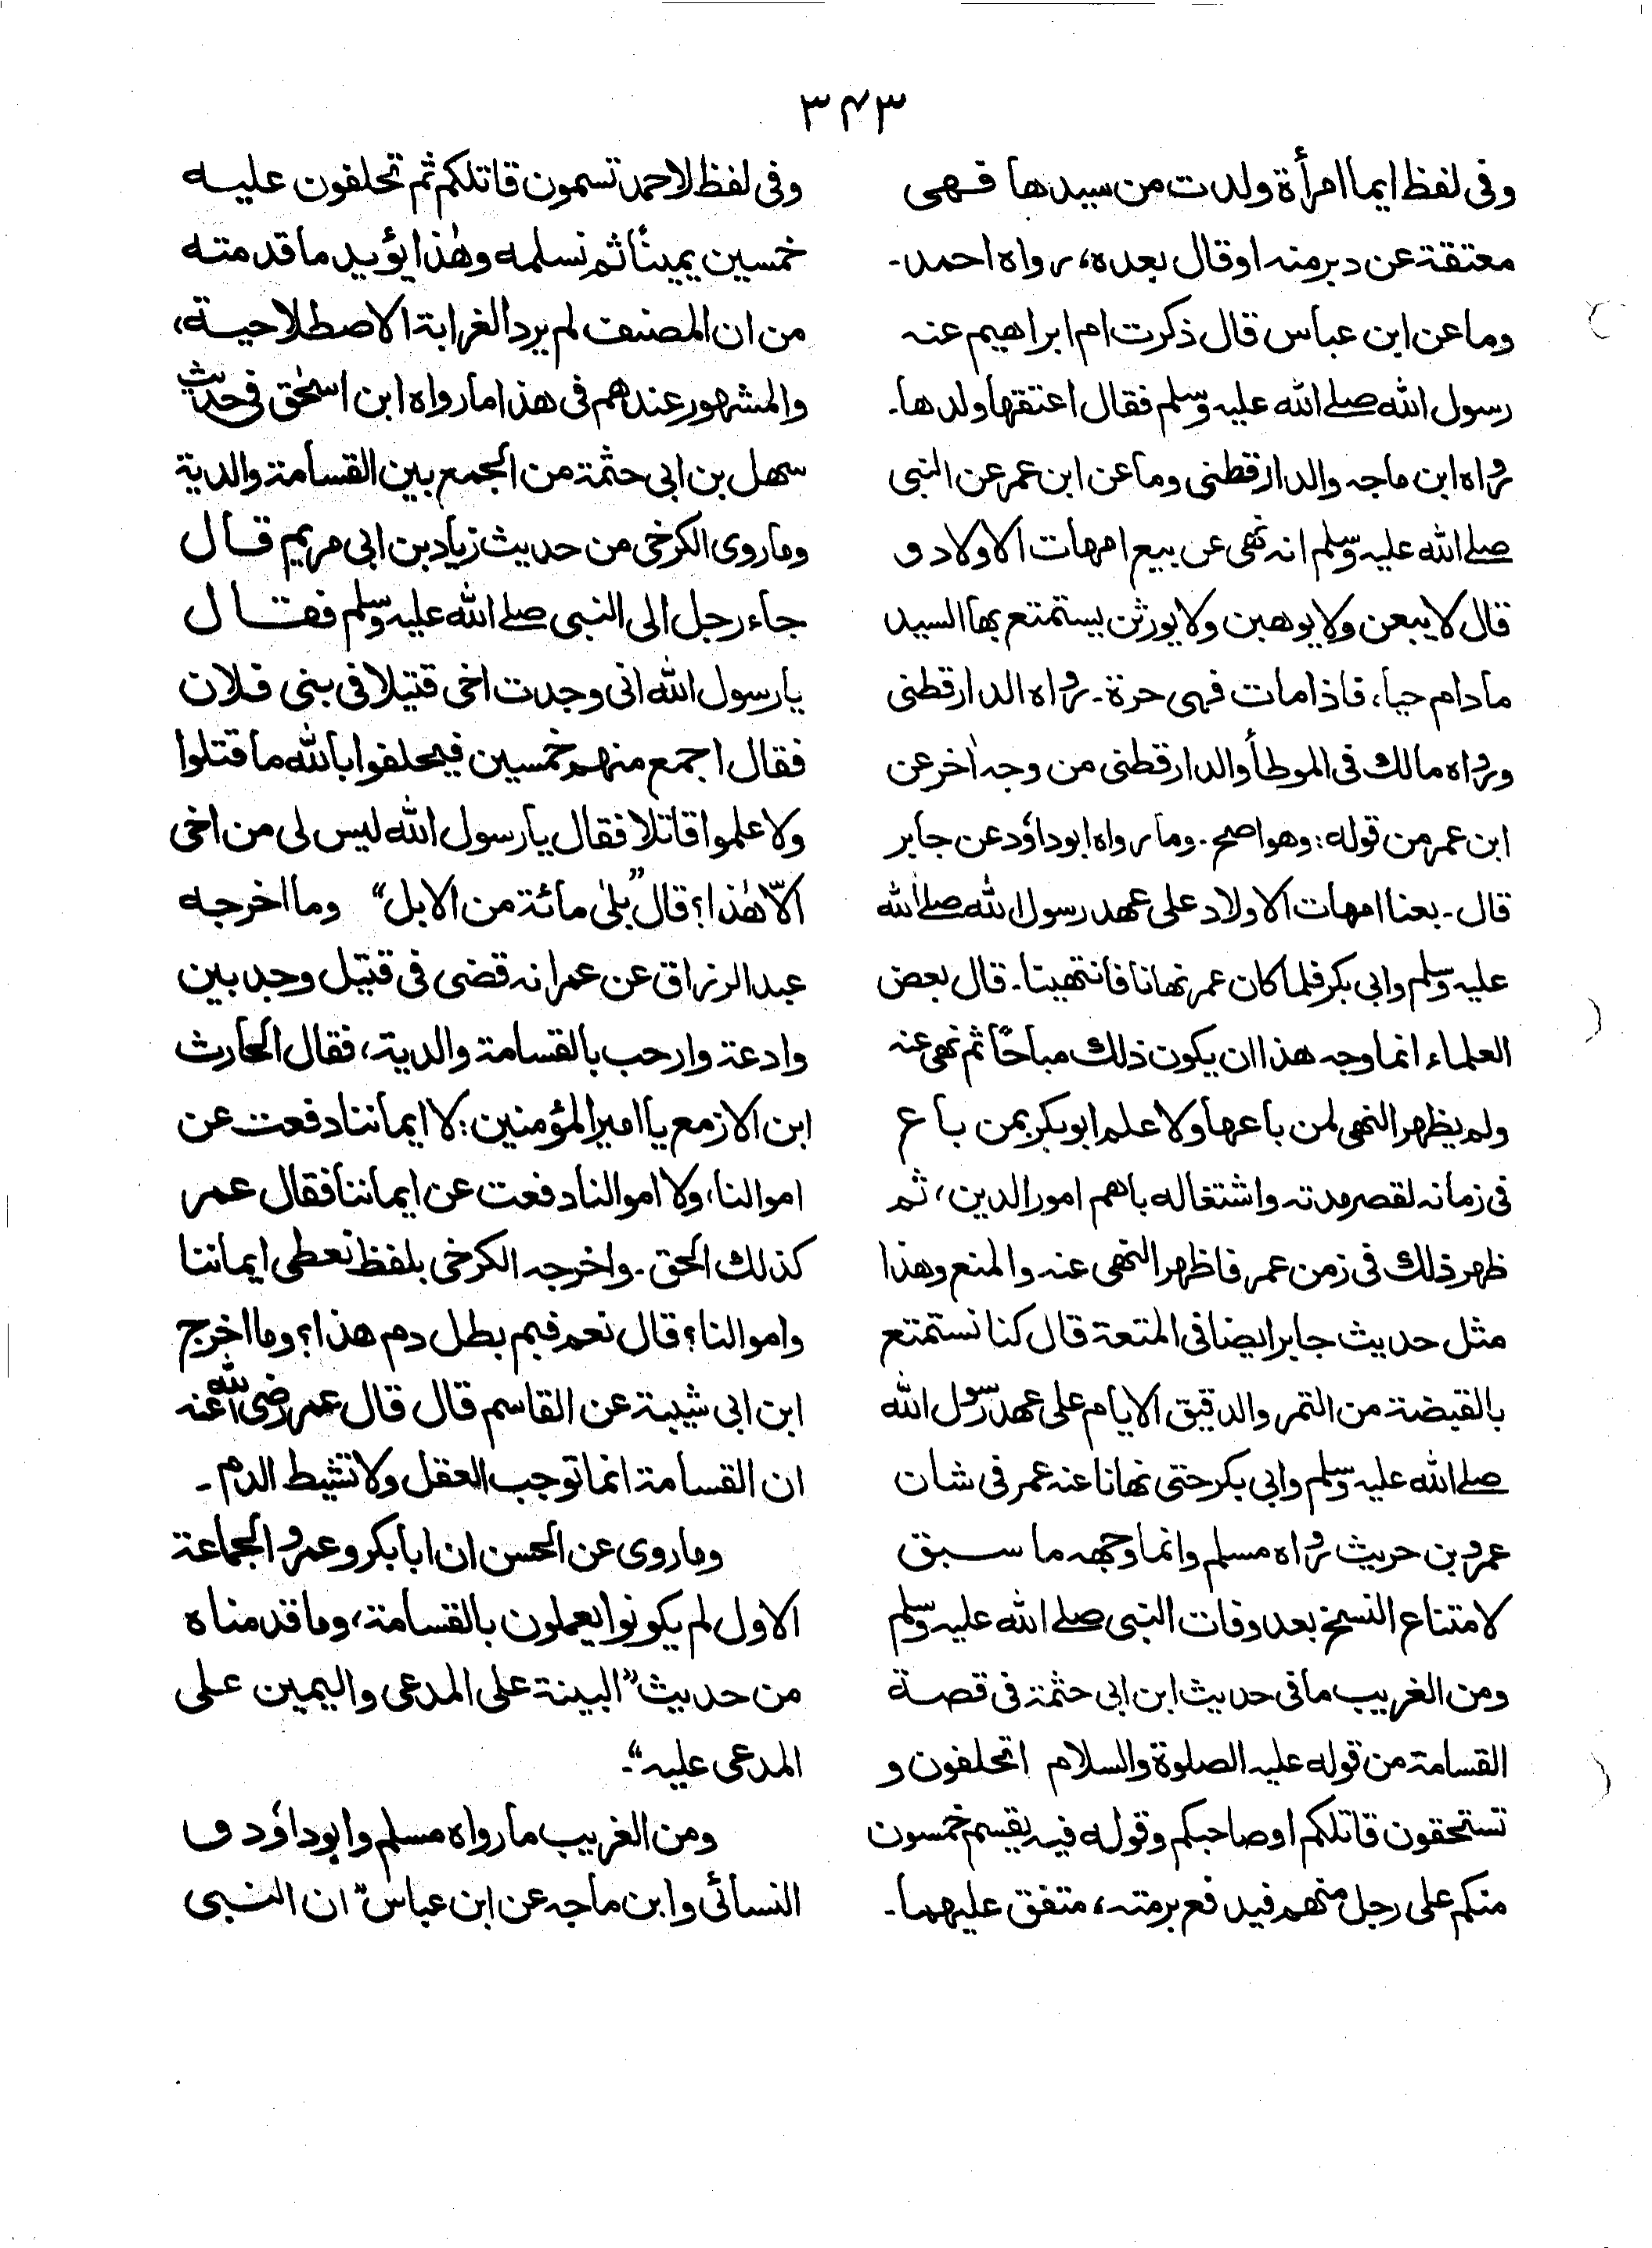 ۳۴۳
وفی لفظ ایما امرأة ولدت من سیدها فهی
معتقة عن دبر منه او قال بعده، رواه احمد۔
وما عن ابن عباس قال ذکرت ام ابراهیم عنه
رسول الله صلے الله علیہ وسلم فقال اعتقها ولدها۔
رواه ابن ماجہ والدارقطنی وما عن ابن عمر عن النبی
صلے الله علیہ وسلم انہ نهی عن بیع امهات الاولاد و
قال لا یبعن ولا یوهبن ولا یورثن یستمتع بها السید
مادام حیا، فاذا مات فهی حرة۔ رواه الدارقطنی
ورواه مالك فی الموطأ والدارقطنی من وجہ اٰخر عن
ابن عمر من قوله: وهو اصح۔ وما رواه ابوداؤد عن جابر
قال۔ بعنا امهات الاولاد علی عهد رسول الله صلے الله
علیہ وسلم وابی بکر فلما کان عمر نهانا فانتهینا۔ قال بعض
العلماء انما وجہ هذا ان یکون ذلك مباحًا ثم نهی عنہ
ولم یظهر النهی لمن باعها ولا علم ابوبکر بمن باع
فی زمانہ لقصر مدتہ واشتغاله باهم امور الدین، ثم
ظهر ذلك فی زمن عمر فاظهر النهی عنہ والمنع وهذا
مثل حدیث جابر ایضا فی المتعة قال کنا نستمتع
بالقبضة من التمر والدقیق الایام علی عهد رسول الله
صلے الله علیہ وسلم وابی بکر حتی نهانا عنہ عمر فی شان
عمرو بن حریث رواه مسلم وانما وجهہ ما سبق
لامتناع النسخ بعد وفات النبی صلے الله علیہ وسلم
ومن الغریب ما فی حدیث ابن ابی حثمة فی قصة
القسامة من قوله علیہ الصلوة والسلام اتحلفون و
تستحقون قاتلکم او صاحبکم وقوله فیہ یقسم خمسون
منکم علی رجل منهم فید فع برمتہ، متفق علیهما۔
وفی لفظ لاحمد تسمون قاتلکم ثم تحلفون علیہ
خمسین یمینًا ثم نسلمه وهٰذا یؤید ما قدمتہ
من ان المصنف لم یرد الغرابة الاصطلاحیة،
والمشهور عندهم فی هذا ما رواه ابن اسحٰق فی حدیث
سهل بن ابی حثمة من الجمع بین القسامة والدیة
وما روی الکرخی من حدیث زیاد بن ابی مریم قال
جاء رجل الی النبی صلے الله علیہ وسلم فقال
یا رسول الله انی وجدت اخی قتیلا فی بنی فلان
فقال اجمع منهم خمسین فیحلفوا بالله ما قتلوا
ولا علموا قاتلا فقال یا رسول الله لیس لی من اخی
الاّ هٰذا؟ قال ”بلیٰ مائة من الابل“ وما اخرجه
عبدالرزاق عن عمر انہ قضی فی قتیل وجد بین
وادعة وارحب بالقسامة والدیة، فقال الحارث
ابن الازمع یا امیر المؤمنین: لا ایماننا دفعت عن
اموالنا، ولا اموالنا دفعت عن ایماننا فقال عمر
کذلك الحق۔ واخرجہ الکرخی بلفظ نعطی ایماننا
واموالنا؟ قال نعم فبم بطل دم هذا؟ وما اخرج
ابن ابی شیبة عن القاسم قال قال عمر رضی الله عنہ
ان القسامة انما توجب العقل ولا تشیط الدم۔
وما روی عن الحسن ان ابابکر وعمر والجماعة
الاول لم یکونوا یعملون بالقسامة، وما قدمناه
من حدیث ”البینة علی المدعی والیمین علی
المدعی علیہ“۔
ومن الغریب ما رواه مسلم وابوداؤد و
النسائی وابن ماجہ عن ابن عباس” ان النبی